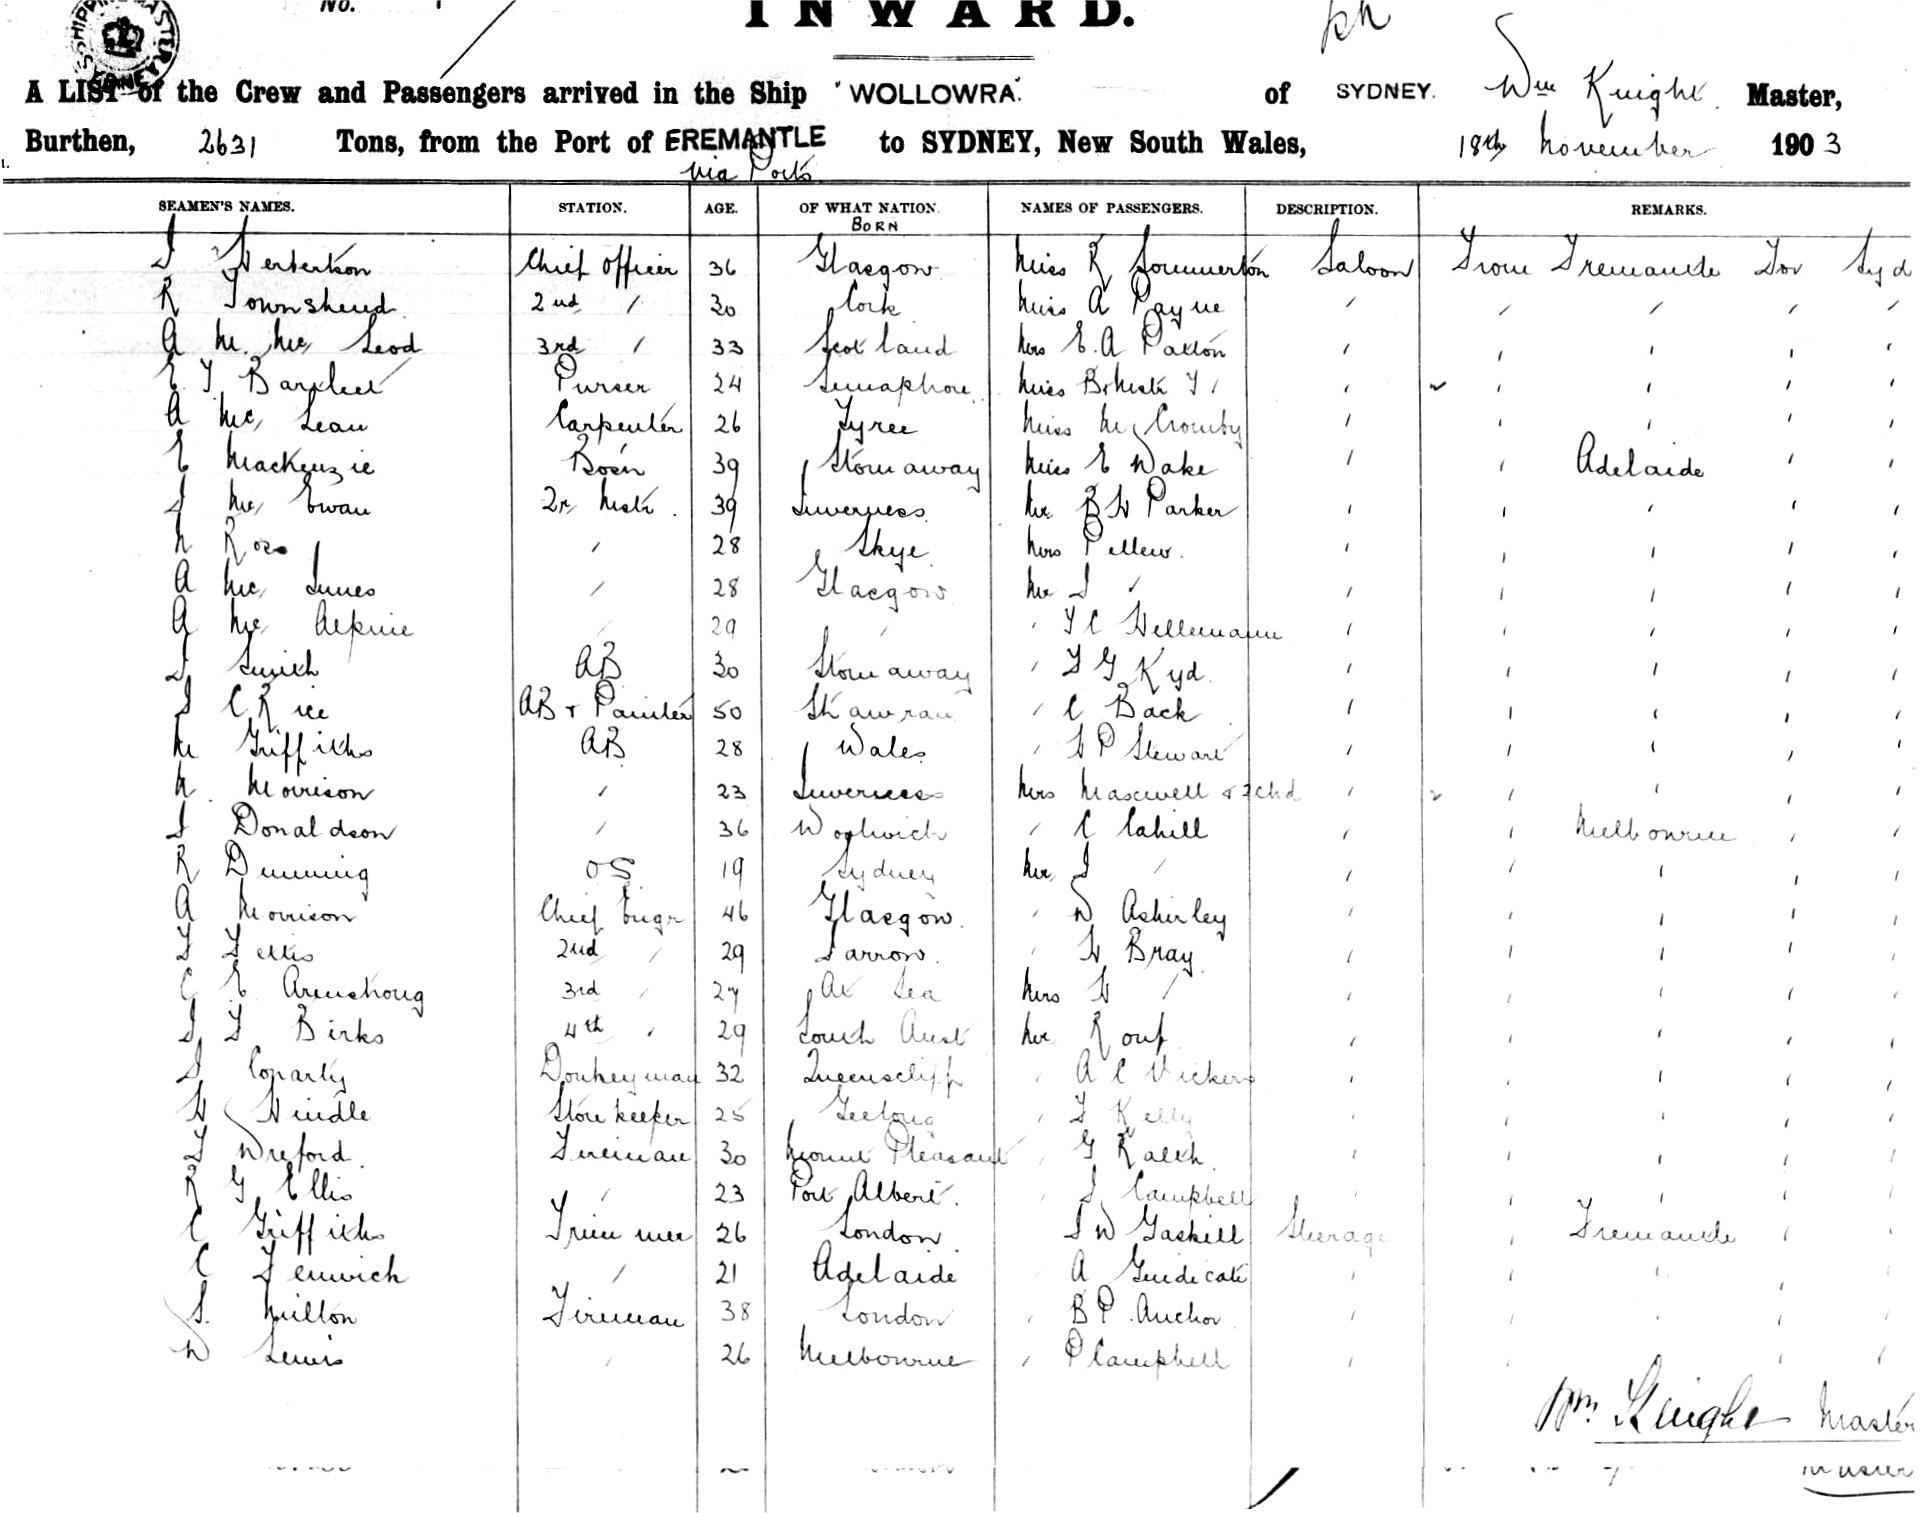 No.
INWARD.
A LIST of the Crew and Passengers arrived in the Ship 'WOLLOWRA' of SYDNEY. Wm Knight. Master,
Burthen, 2631 Tons, from the Port of FREMANTLE to SYDNEY, New South Wales, 18th November 1903
via Ports
SEAMEN'S NAMES. STATION. AGE. OF WHAT NATION. NAMES OF PASSENGERS. DESCRIPTION. REMARKS.
BORN
Chief Officer 36 Glasgow Miss R Sommerton Saloon From Fremantle For Syd
R Townshend 2nd " 30 Cork Miss A Payne " " " " "
A M. Mc Leod 3rd " 33 Scotland Mrs E. A Paxton " " " " "
E T Bartlett Purser 24 Semaphore Miss " " " " "
A Mc Lean Carpenter 26 Tyree Miss M Cromby " " " " "
E Mackenzie Bosn 39 Stornaway Miss E Wake " " Adelaide " "
J Mc Ewan 39 Inverness Mr B H Parker " " " " "
N Ross " 28 Skye Mrs Pellew. " " " " "
A Mc Innes " 28 Glasgow Mr J " " " " " "
A Mc Alpine " 29 " " F C Hellemann " " " " "
J Smith AB 30 Stornaway " F G Kyd. " " " " "
J C Rice AB & Painter 50 " C Back " " " " "
M Griffiths AB 28 Wales " H P Stewart " " " " "
N. Morrison " 23 Inverness Mrs Maxwell & 2 chd " " " " "
J Donaldson " 36 Woolwich " C Cahill " " Melbourne " "
R Dunning OS 19 Sydney Mr J " " " " " "
A Morrison Chief Engr 46 Glasgow. " W Ashirley " " " " "
2nd " 29 Jarrow. " H Bray " " " " "
C E Armstrong 3rd " 27 At Sea Mrs H " " " " " "
J F Birks 4th " 29 South Aust Mr Rouf " " " " "
J Coparty Donkeyman 32 Queenscliff " A C Vickers " " " " "
H Hindle Storekeeper 25 Geelong " F Kelly " " " " "
F Wreford. Fireman 30 Mount Pleasant " G Ralth. " " " " "
R G Ellis " 23 Port Albert. " J Campbell " " " " "
C Griffiths Trimmer 26 London. J W Gaskell Steerage " Fremantle " "
C Fenwick " 21 Adelaide A Guidicati " " " " "
S. Milton Fireman 38 London " B P. Anchor " " " " "
W Lewis " 26 Melbourne " P Campbell " " " " "
Wm. Knight Master
Master